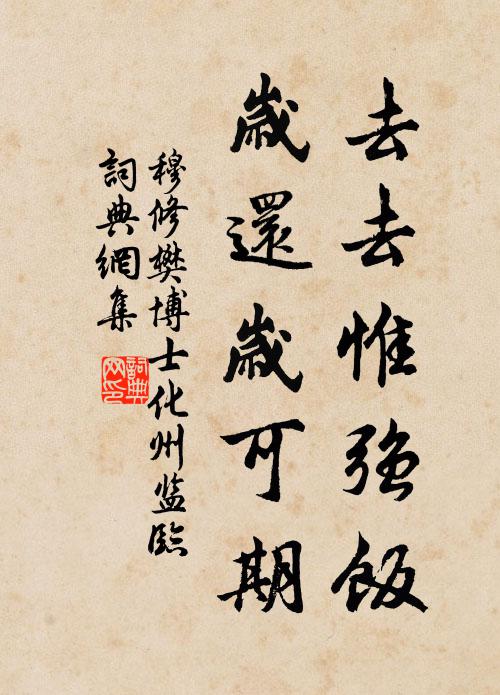 去去惟強飯
歲還歲可期
穆修樊博士化州监臨
詞典網集
詞典网印